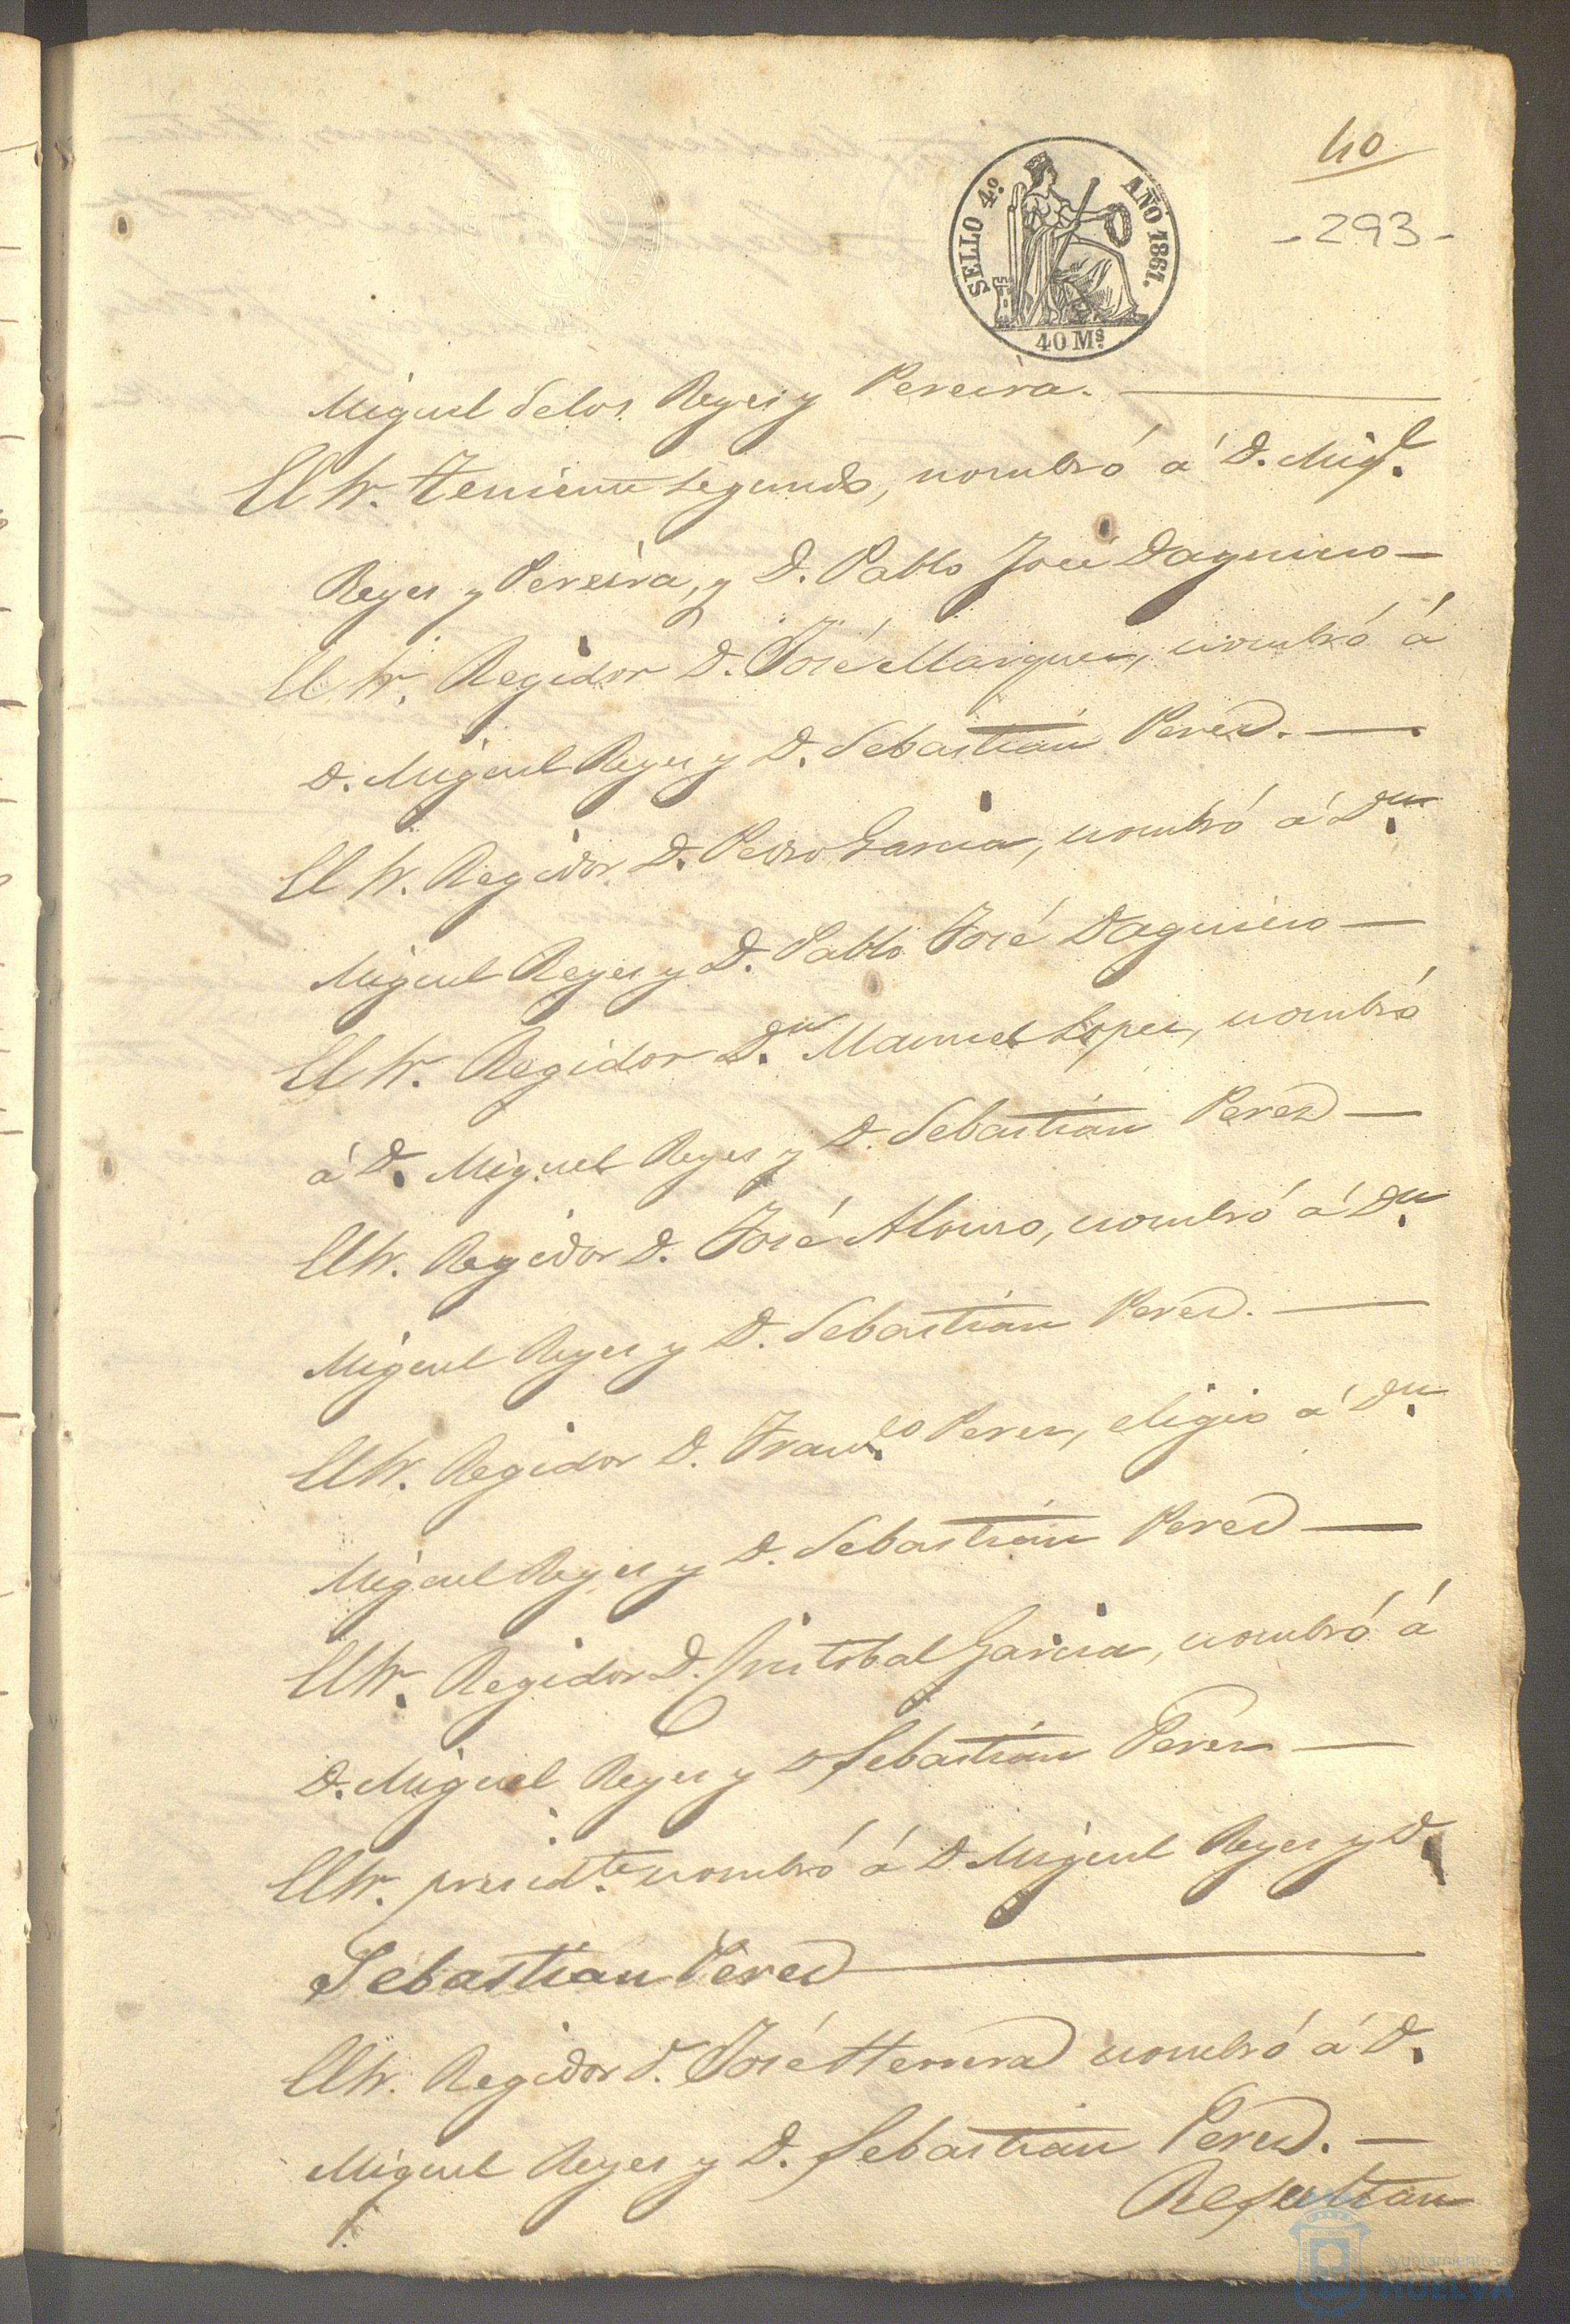 40
-293-
SELLO 4º. AÑO 1861.
40 Ms.
Miguel delos Reyes y Pereira.
El Sr. Teniente segundo, nombró á D. Migl.
Reyes y Pereira, y D. Pablo José Dagnino
El Sr. Regidor D. José Marquez, nombró á
D. Miguel Reyes y D. Sebastian Perez.
El Sr. Regidor D. Pedro Garcia, nombró á Dn.
Miguel Reyes y D. Pablo José Dagnino
El Sr. Regidor Dn. Manuel Lopez, nombró
á D. Miguel Reyes y D. Sebastian Perez
El Sr. Regidor D. José Alonso, nombró á Dn.
Miguel Reyes y D. Sebastian Perez.
El Sr. Regidor D. Franco. Perez, eligio á Dn.
Miguel Reyes y D. Sebastian Perez
El Sr. Regidor D. Cristobal Garcia, nombró á
D. Miguel Reyes y D Sebastian Perez
El Sr. presidte. nombró á D Miguel Reyes y D.
Sebastian Perez
El Sr. Regidor D. José Herrera nombró á D.
Miguel Reyes y D. Sebastian Perez.
Resultan
Ayuntamiento de
HUELVA